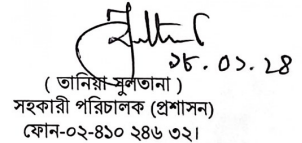 ১৮.০১.২৪
( তানিয়া সুলতানা )
সহকারী পরিচালক (প্রশাসন)
ফোন-০২-৪১০ ২৪৬ ৩২।